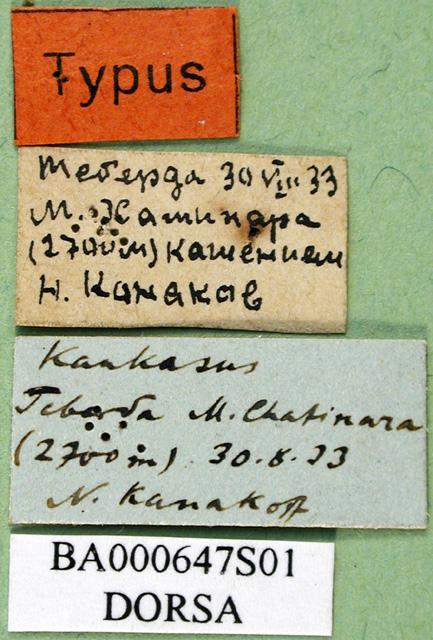 Typus
Теберда 30 VIII 33
М. Хатипара
(2700м)
Н. Канаков
Kaukasus
Teberda M. Chatipara
(2700m) 30.8.33
N. Kanakoff
BA000647S01
DORSA